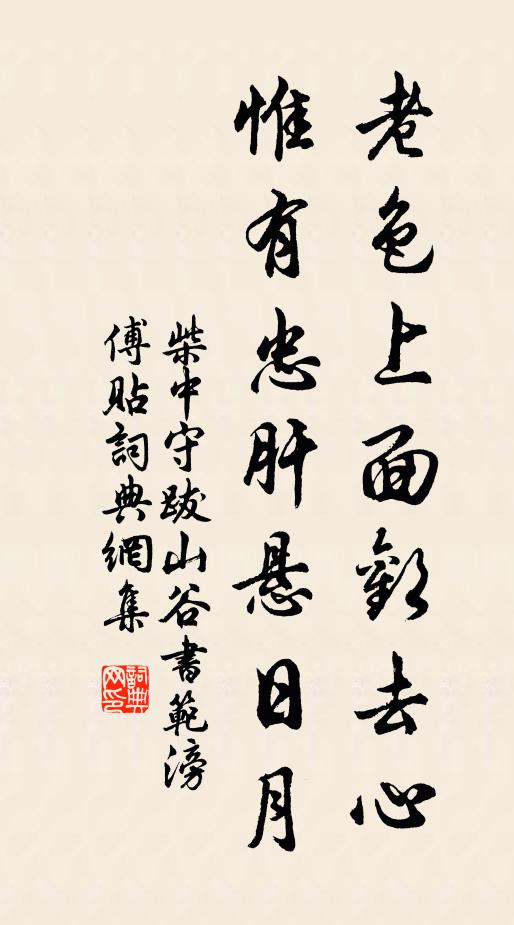 老色上面歡去心
惟有忠肝悬日月
柴中守跋山谷書範滂
傅貼詞典網集
詞典网印